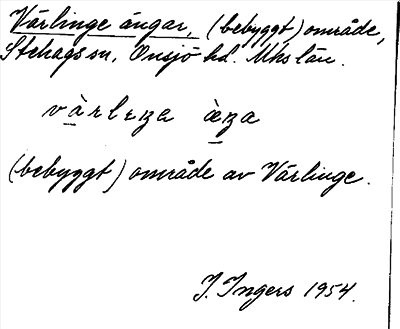 Värlinge ängar, (bebyggt) område,
Stehags sn, Onsjö hd. Mhs län.
(bebyggt) område av Värlinge.
I. Ingers 1954.